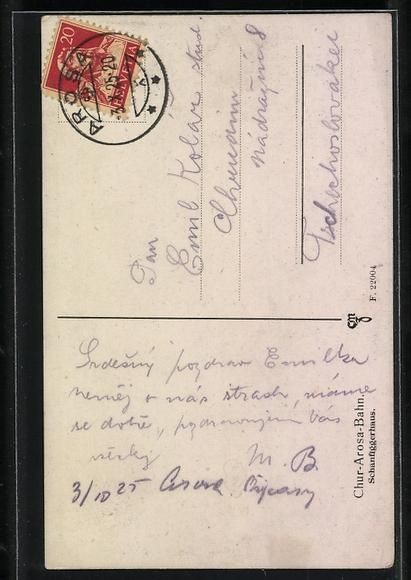 20
HELVETIA
AROSA
3.X.25-20
Pan
Emil Kolář stud
Chrudim
Nádražní 8
Tschechoslovakei
Srdečný pozdrav
neměj o nás strach, máme
se dobře, pozdravujem Vás
všecky
M. B.
3/10 25 Arosa
Chur-Arosa-Bahn.
Schanfiggerhaus.
F. 22004